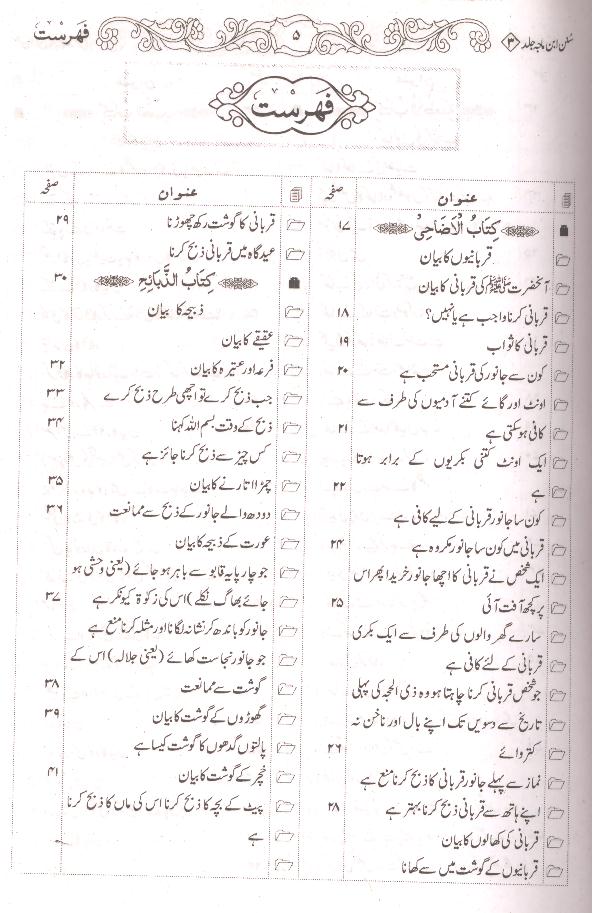 سُنن ابن ماجہ جلد ۳
۵
فہرست
فہرست
عنوان صفحہ
کتابُ الْاَضَاحِیْ ۱۷
قربانیوں کا بیان
آنحضرت ﷺ کی قربانی کا بیان
قربانی کرنا واجب ہے یا نہیں؟ ۱۸
قربانی کا ثواب ۱۹
کون سے جانور کی قربانی مستحب ہے ۲۰
اونٹ اور گائے کتنے آدمیوں کی طرف سے
کافی ہو سکتی ہے ۲۱
ایک اونٹ کتنی بکریوں کے برابر ہوتا
ہے ۲۲
کون سا جانور قربانی کے لیے کافی ہے
قربانی میں کون سا جانور مکروہ ہے ۲۴
ایک شخص نے قربانی کا اچھا جانور خریدا پھر اس
پر کچھ آفت آئی ۲۵
سارے گھر والوں کی طرف سے ایک بکری
قربانی کے لئے کافی ہے
جو شخص قربانی کرنا چاہتا ہو وہ ذی الحجہ کی پہلی
تاریخ سے دسویں تک اپنے بال اور ناخن نہ
کتروائے ۲۶
نماز سے پہلے جانور قربانی کا ذبح کرنا منع ہے
اپنے ہاتھ سے قربانی ذبح کرنا بہتر ہے ۲۸
قربانی کی کھالوں کا بیان
قربانیوں کے گوشت میں سے کھانا
عنوان صفحہ
قربانی کا گوشت رکھ چھوڑنا ۲۹
عیدگاہ میں قربانی ذبح کرنا
کتابُ الذَّبَائِح ۳۰
ذبیحہ کا بیان
عقیقے کا بیان
فرعہ اور عتیرہ کا بیان ۳۲
جب ذبح کرے تو اچھی طرح ذبح کرے ۳۳
ذبح کے وقت بسم اللہ کہنا ۳۴
کس چیز سے ذبح کرنا جائز ہے
چمڑا اتارنے کا بیان ۳۵
دودھ والے جانور کے ذبح سے ممانعت ۳۶
عورت کے ذبیحہ کا بیان
جو چار پایہ قابو سے باہر ہو جائے (یعنی وحشی ہو
جائے بھاگ نکلے) اس کی زکوٰۃ کیونکر ہے ۳۷
جانور کو باندھ کر نشانہ لگانا اور مثلہ کرنا منع ہے
جو جانور نجاست کھائے (یعنی جلالہ) اس کے
گوشت سے ممانعت ۳۸
گھوڑوں کے گوشت کا بیان ۳۹
پالتوں گدھوں کا گوشت کیسا ہے
خچر کے گوشت کا بیان ۴۱
پیٹ کے بچہ کا ذبح کرنا اس کی ماں کا ذبح کرنا
ہے